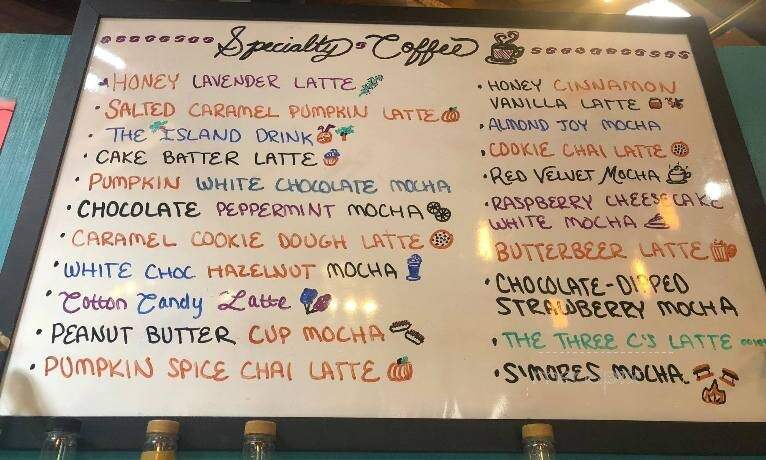 Specialty Coffee
• HONEY LAVENDER LATTE
• SALTED CARAMEL PUMPKIN LATTE
• THE ISLAND DRINK
• CAKE BATTER LATTE
• PUMPKIN WHITE CHOCOLATE MOCHA
• CHOCOLATE PEPPERMINT MOCHA
• CARAMEL COOKIE DOUGH LATTE
• WHITE CHOC HAZELNUT MOCHA
• Cotton Candy Latte
• PEANUT BUTTER CUP MOCHA
• PUMPKIN SPICE CHAI LATTE
• HONEY CINNAMON
VANILLA LATTE
• ALMOND JOY MOCHA
• COOKIE CHAI LATTE
• RED VELVET MOCHA
• RASPBERRY CHEESECAKE
WHITE MOCHA
BUTTERBEER LATTE
• CHOCOLATE-DIPPED
STRAWBERRY MOCHA
• THE THREE C'S LATTE
• S'MORES MOCHA